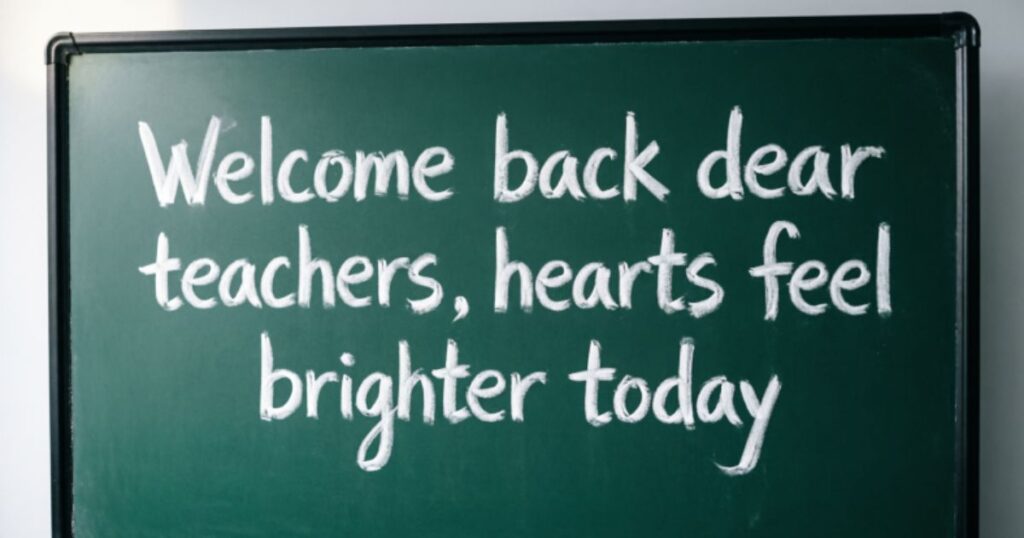 Welcome back dear
teachers, hearts feel
brighter today